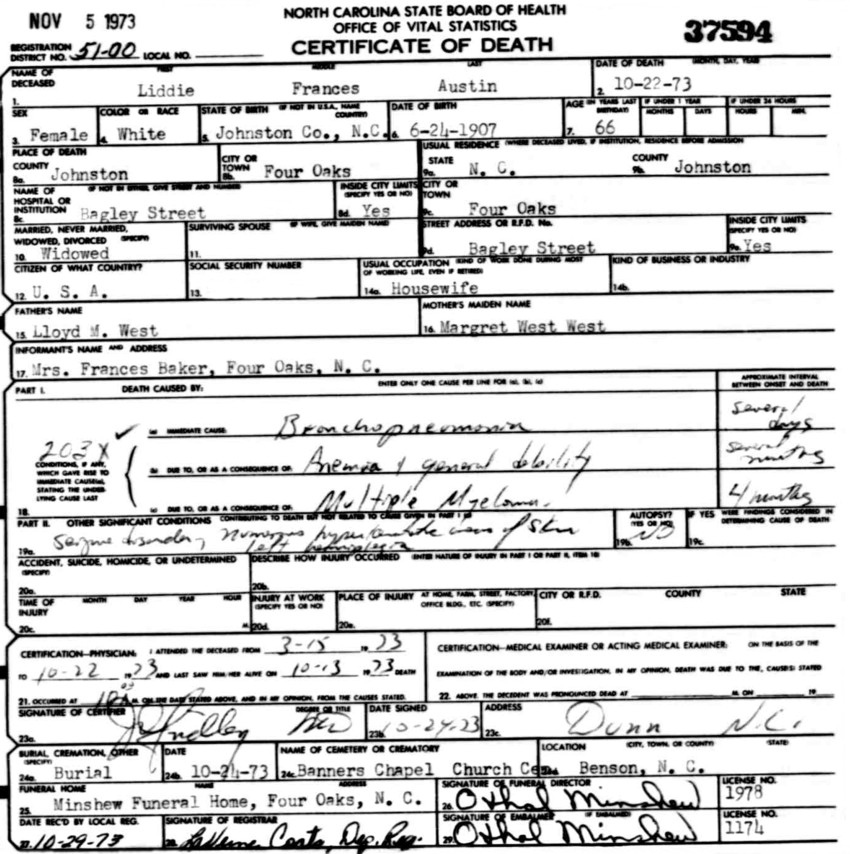 NOV 5 1973
NORTH CAROLINA STATE BOARD OF HEALTH
OFFICE OF VITAL STATISTICS
CERTIFICATE OF DEATH
37594
REGISTRATION DISTRICT NO. 51-00 LOCAL NO.
NAME OF DECEASED FIRST MIDDLE LAST DATE OF DEATH (MONTH, DAY, YEAR)
1. Liddie Frances Austin 2. 10-22-73
SEX COLOR OR RACE STATE OF BIRTH (IF NOT IN U.S.A., NAME COUNTRY) DATE OF BIRTH AGE (IN YEARS LAST BIRTHDAY) IF UNDER 1 YEAR MONTHS DAYS IF UNDER 24 HOURS HOURS MIN.
3. Female 4. White 5. Johnston Co., N.C. 6. 6-24-1907 7. 66
PLACE OF DEATH USUAL RESIDENCE (WHERE DECEASED LIVED, IF INSTITUTION, RESIDENCE BEFORE ADMISSION)
COUNTY CITY OR TOWN STATE COUNTY
8a. Johnston 8b. Four Oaks 9a. N. C. 9b. Johnston
NAME OF HOSPITAL OR INSTITUTION (IF NOT IN EITHER, GIVE STREET AND NUMBER) INSIDE CITY LIMITS (SPECIFY YES OR NO) CITY OR TOWN
8c. Bagley Street 8d. Yes 9c. Four Oaks
MARRIED, NEVER MARRIED, WIDOWED, DIVORCED (SPECIFY) SURVIVING SPOUSE (IF WIFE, GIVE MAIDEN NAME) STREET ADDRESS OR R.F.D. No. INSIDE CITY LIMITS (SPECIFY YES OR NO)
10. Widowed 11. 9d. Bagley Street 9e. Yes
CITIZEN OF WHAT COUNTRY? SOCIAL SECURITY NUMBER USUAL OCCUPATION (KIND OF WORK DONE DURING MOST OF WORKING LIFE, EVEN IF RETIRED) KIND OF BUSINESS OR INDUSTRY
12. U. S. A. 13. 14a. Housewife 14b.
FATHER'S NAME MOTHER'S MAIDEN NAME
15. Lloyd M. West 16. Margret West West
INFORMANT'S NAME AND ADDRESS
17. Mrs. Frances Baker, Four Oaks, N. C.
PART I. DEATH CAUSED BY: ENTER ONLY ONE CAUSE PER LINE FOR (a), (b), (c) APPROXIMATE INTERVAL BETWEEN ONSET AND DEATH
(a) IMMEDIATE CAUSE: Bronchopneumonia several days
203X
CONDITIONS, IF ANY, WHICH GAVE RISE TO IMMEDIATE CAUSE(a), STATING THE UNDERLYING CAUSE LAST
(b) DUE TO, OR AS A CONSEQUENCE OF: Anemia & general debility several months
18. (c) DUE TO, OR AS A CONSEQUENCE OF: Multiple Myeloma. 4 months
PART II. OTHER SIGNIFICANT CONDITIONS CONTRIBUTING TO DEATH BUT NOT RELATED TO CAUSE GIVEN IN PART I (a) AUTOPSY? (YES OR NO) IF YES WERE FINDINGS CONSIDERED IN DETERMINING CAUSE OF DEATH
19a. Seizure disorder, numerous of skin 19b. NO 19c.
left hemiplegia
ACCIDENT, SUICIDE, HOMICIDE, OR UNDETERMINED (SPECIFY) DESCRIBE HOW INJURY OCCURRED (ENTER NATURE OF INJURY IN PART I OR PART II, ITEM 18)
20a. 20b.
TIME OF INJURY MONTH DAY YEAR HOUR INJURY AT WORK (SPECIFY YES OR NO) PLACE OF INJURY AT HOME, FARM, STREET, FACTORY, OFFICE BLDG., ETC. (SPECIFY) CITY OR R.F.D. COUNTY STATE
20c. M. 20d. 20e. 20f.
CERTIFICATION—PHYSICIAN: I ATTENDED THE DECEASED FROM 3-15 1973 CERTIFICATION—MEDICAL EXAMINER OR ACTING MEDICAL EXAMINER: ON THE BASIS OF THE
TO 10-22 1973 AND LAST SAW HIM/HER ALIVE ON 10-13 1973 DEATH EXAMINATION OF THE BODY AND/OR INVESTIGATION, IN MY OPINION, DEATH WAS DUE TO THE, CAUSE(S) STATED
21. OCCURRED AT M. ON THE DATE STATED ABOVE, AND IN MY OPINION, FROM THE CAUSES STATED. 22. ABOVE. THE DECEDENT WAS PRONOUNCED DEAD AT M. ON 19
SIGNATURE OF CERTIFIER DEGREE OR TITLE DATE SIGNED ADDRESS
23a. MD 23b. 10-24-73 23c. Dunn N.C.
BURIAL, CREMATION, OTHER (SPECIFY) DATE NAME OF CEMETERY OR CREMATORY LOCATION (CITY, TOWN, OR COUNTY) (STATE)
24a. Burial 24b. 10-24-73 24c. Banners Chapel Church Cem 24d. Benson, N. C.
FUNERAL HOME NAME ADDRESS SIGNATURE OF FUNERAL DIRECTOR LICENSE NO.
25. Minshew Funeral Home, Four Oaks, N. C. 26. Othal Minshew 1978
DATE REC'D BY LOCAL REG. SIGNATURE OF REGISTRAR SIGNATURE OF EMBALMER (IF EMBALMED) LICENSE NO.
27. 10-29-73 28. LaVerne Coats, Dep. Reg. 29. Othal Minshew 1174